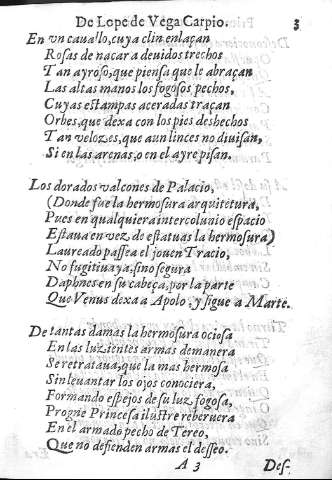 De Lope de Vega Carpio. 3
En vn cauallo, cuya clin enlaçan
Rosas de nacar a deuidos trechos
Tan ayroso, que piensa que le abraçan
Las altas manos los fogosos pechos,
Cuyas estampas aceradas traçan
Orbes, que dexa con los pies deshechos
Tan velozes, que aun linces no diuisan,
Si en las arenas, o en el ayre pisan.
Los dorados valcones de Palacio,
(Donde fue la hermosura arquitetura,
Pues en qualquiera intercolunio espacio
Estaua en vez de estatuas la hermosura)
Laureado passea el jouen Tracio,
No fugitiua ya, sino segura
Daphnes en su cabeça, por la parte
Que Venus dexa a Apolo, y sigue a Marte.
De tantas damas la hermosura ociosa
En las luzientes armas de manera
Se retrataua, que la mas hermosa
Sin leuantar los ojos conociera,
Formando espejos de su luz fogosa,
Progne Princesa ilustre reberuera
En el armado pecho de Tereo,
Que no defienden armas el desseo.
A 3 Des-